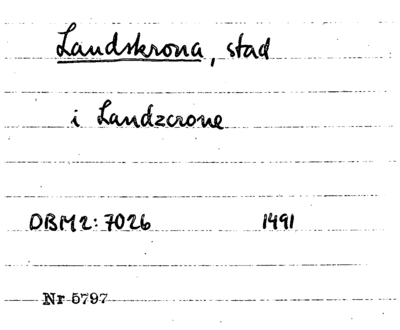 Landskrona, stad
i Landzcrone
DBM2: 7026 1491
Nr 5797